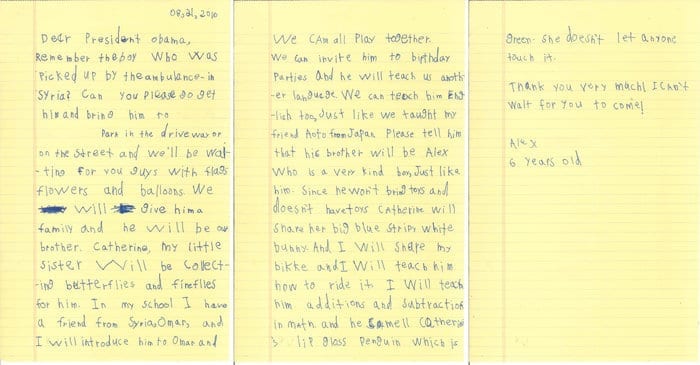 08,21,2010
Dear President obama,
Remember the boy who was
Picked up by the ambulance in
Syria? Can you please go get
him and bring him to
Park in the driveway or
on the street and we'll be wai-
-ting for you guys with flags
flowers and balloons. We
will give him a
family and he will be our
brother. Catherine, my little
sister will be collect-
-ing butterflies and fireflies
for him. In my school I have
a friend from Syria, Omar, and
I will introduce him to Omar and
We can all Play together.
We can invite him to birthday
Parties And he will teach us anoth-
-er language. We can teach him Eng-
-lish too, Just like we taught my
friend Aoto from Japan Please tell him
that his brother will be Alex
Who is a very kind boy, Just like
him. Since he won't bring toys and
doesn't have toys Catherine will
share her big blue stripy white
bunny. And I Will Share my
bikke and I Will teach him
how to ride it. I Will teach
him additions and Subtractions
in math and he smell Catherine
's lip gloss Penguin which is
green. She doesn't let anyone
touch it.
Thank you very much! I can't
wait for you to come!
Alex
6 years old